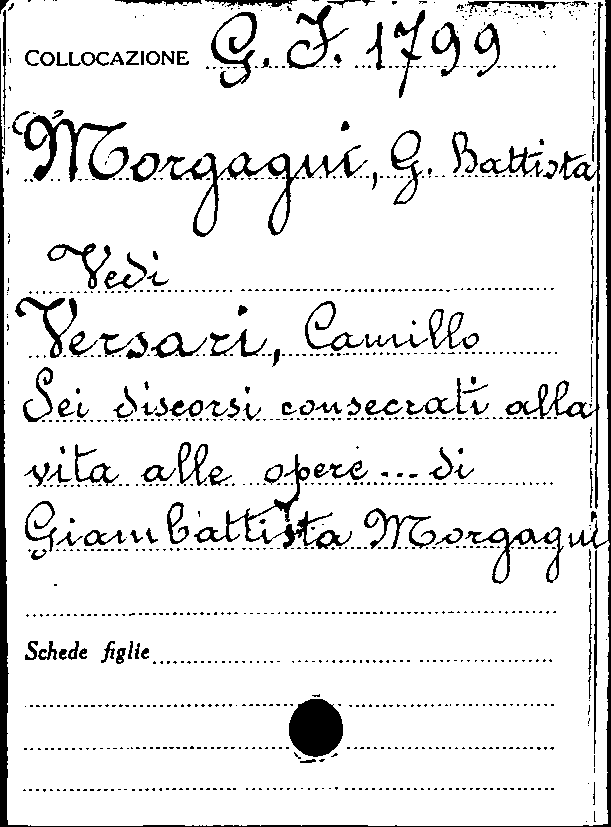 COLLOCAZIONE G. I. 1799
Morgagni, G. Battista
Vedi
Versari, Camillo
Sei discorsi consecrati alla
vita alle opere ... di
Giambattista Morgagni
Schede figlie